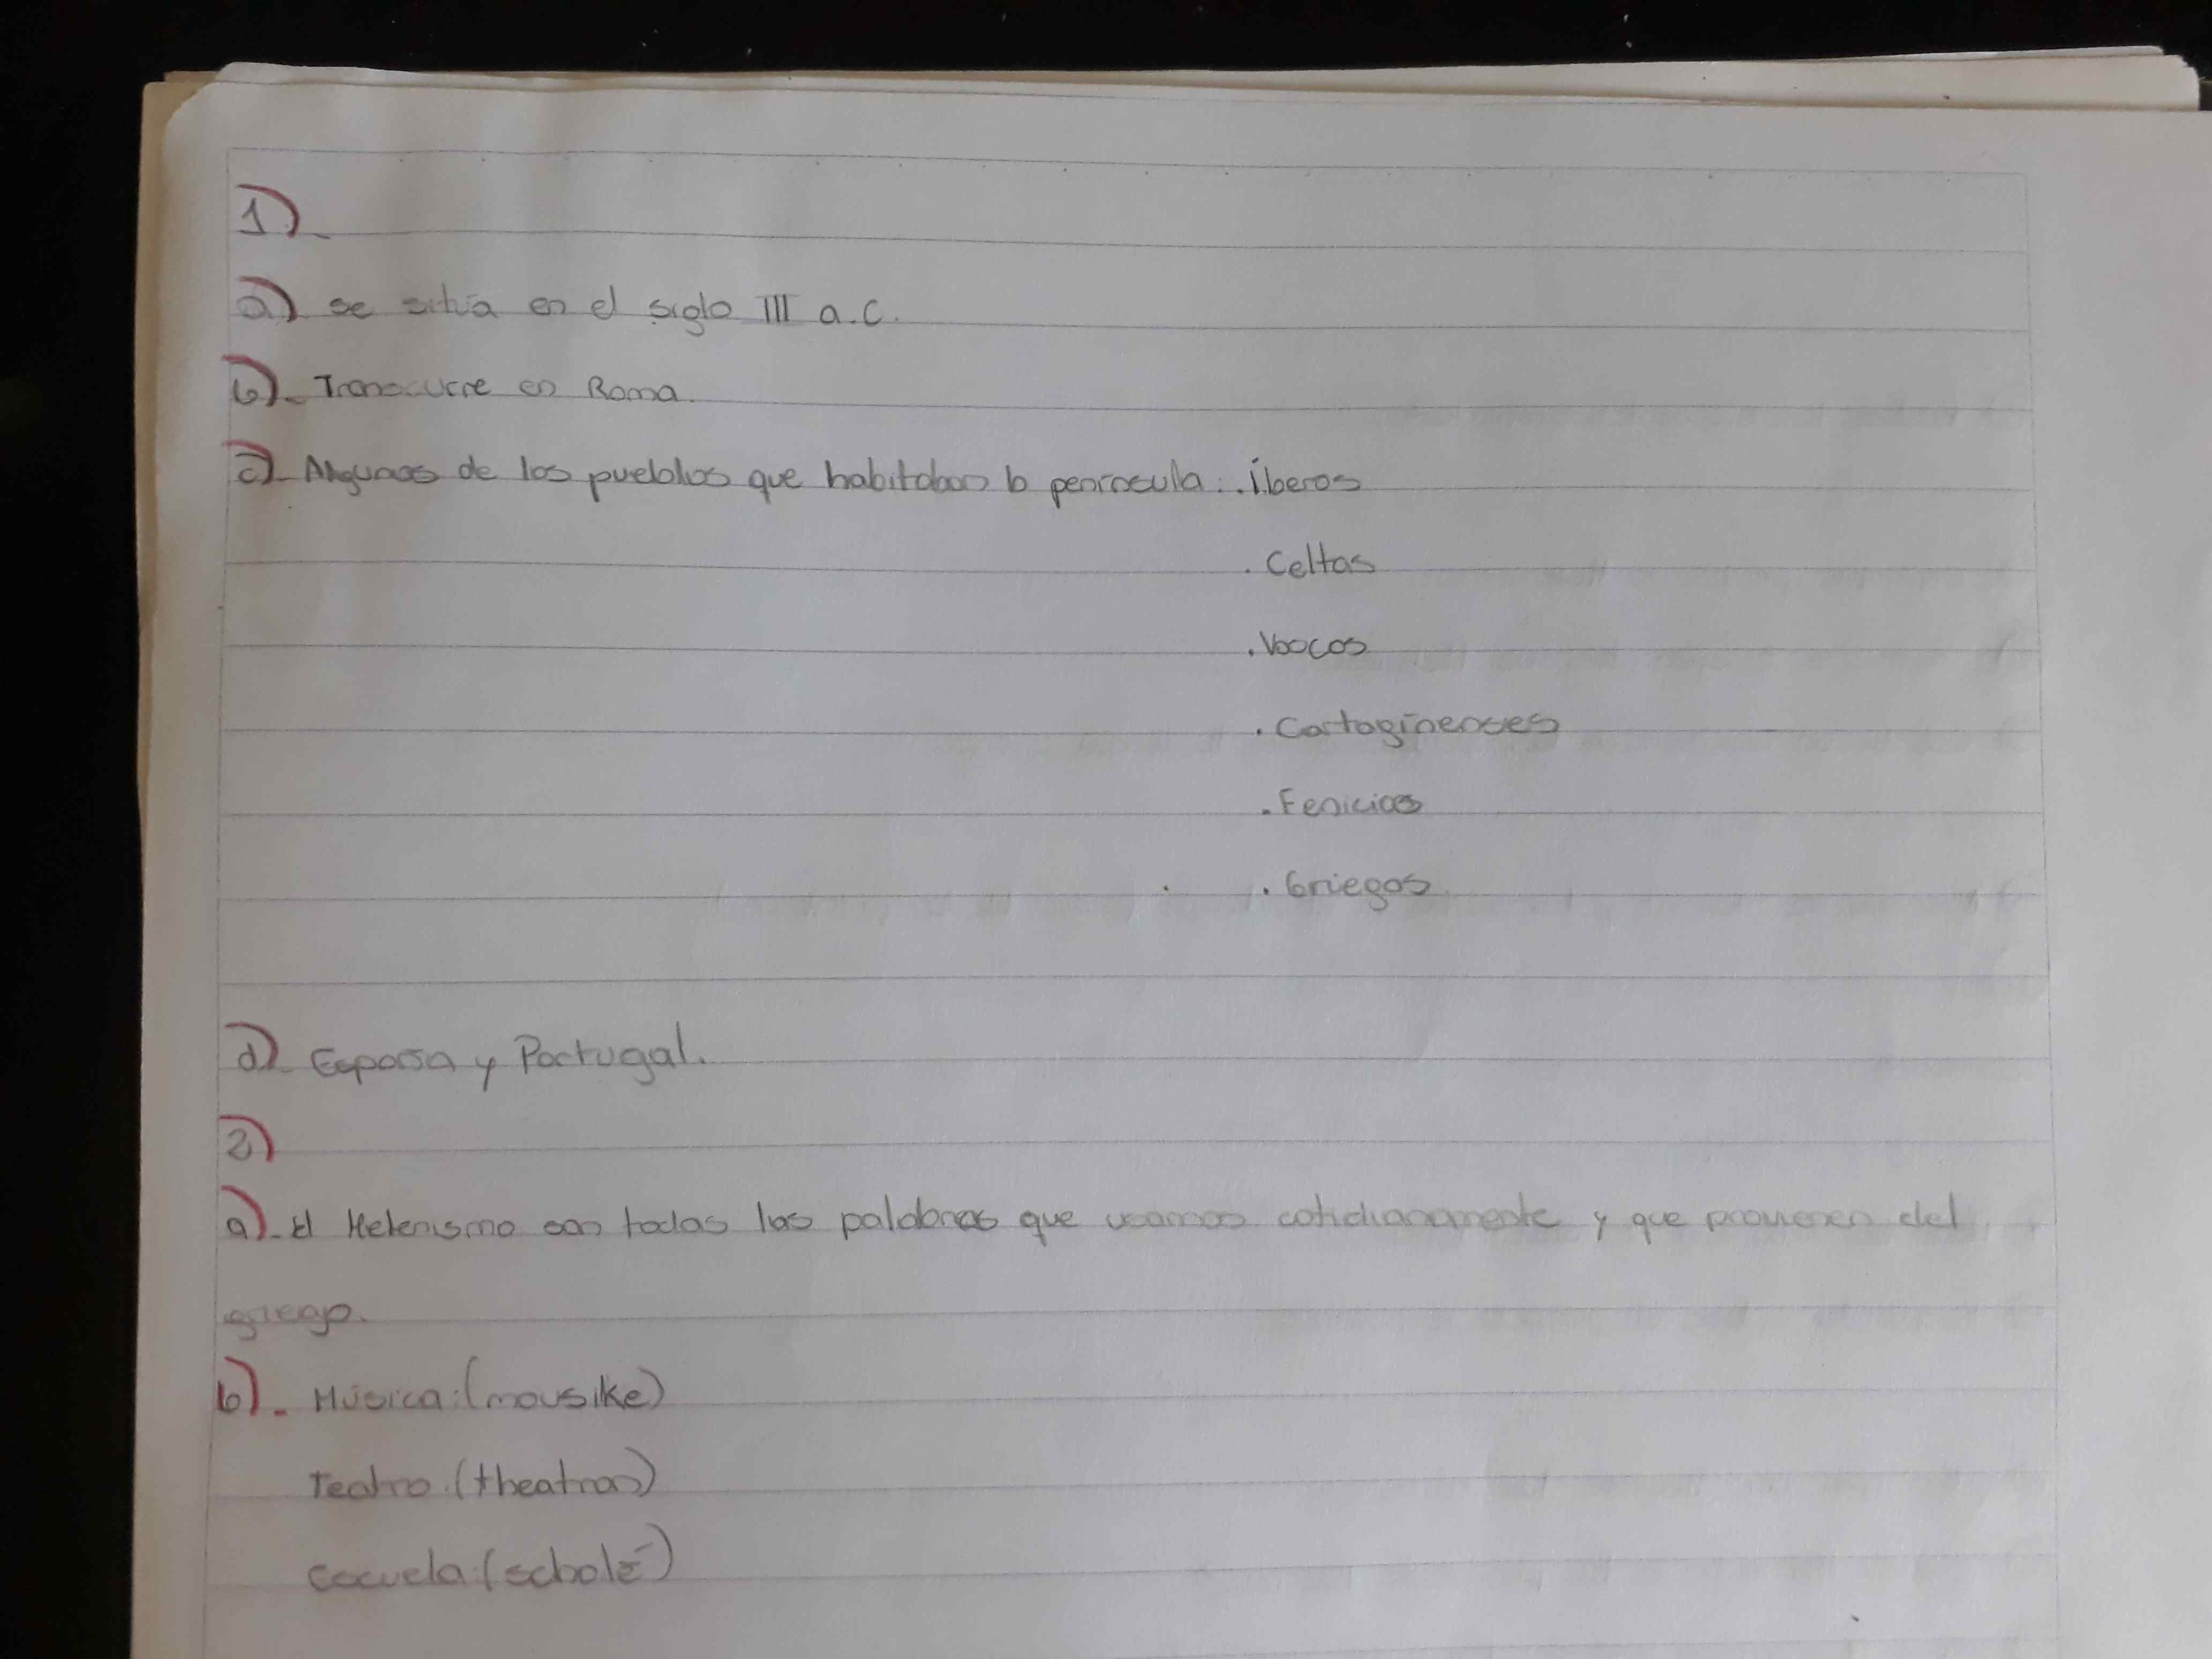 1)-
a) se sitúa en el siglo III a.C.
b)- Transcurre en Roma.
c)- Algunos de los pueblos que habitaban la península: . Íberos
. Celtas
. Vascos
. Cartaginenses
. Fenicios
. Griegos
d)- España y Portugal.
2)
a)- El Helenismo son todas las palabras que usamos cotidianamente y que provienen del
griego.
b)- Música: (mousike)
Teatro: (theatron)
Escuela: (scholé)